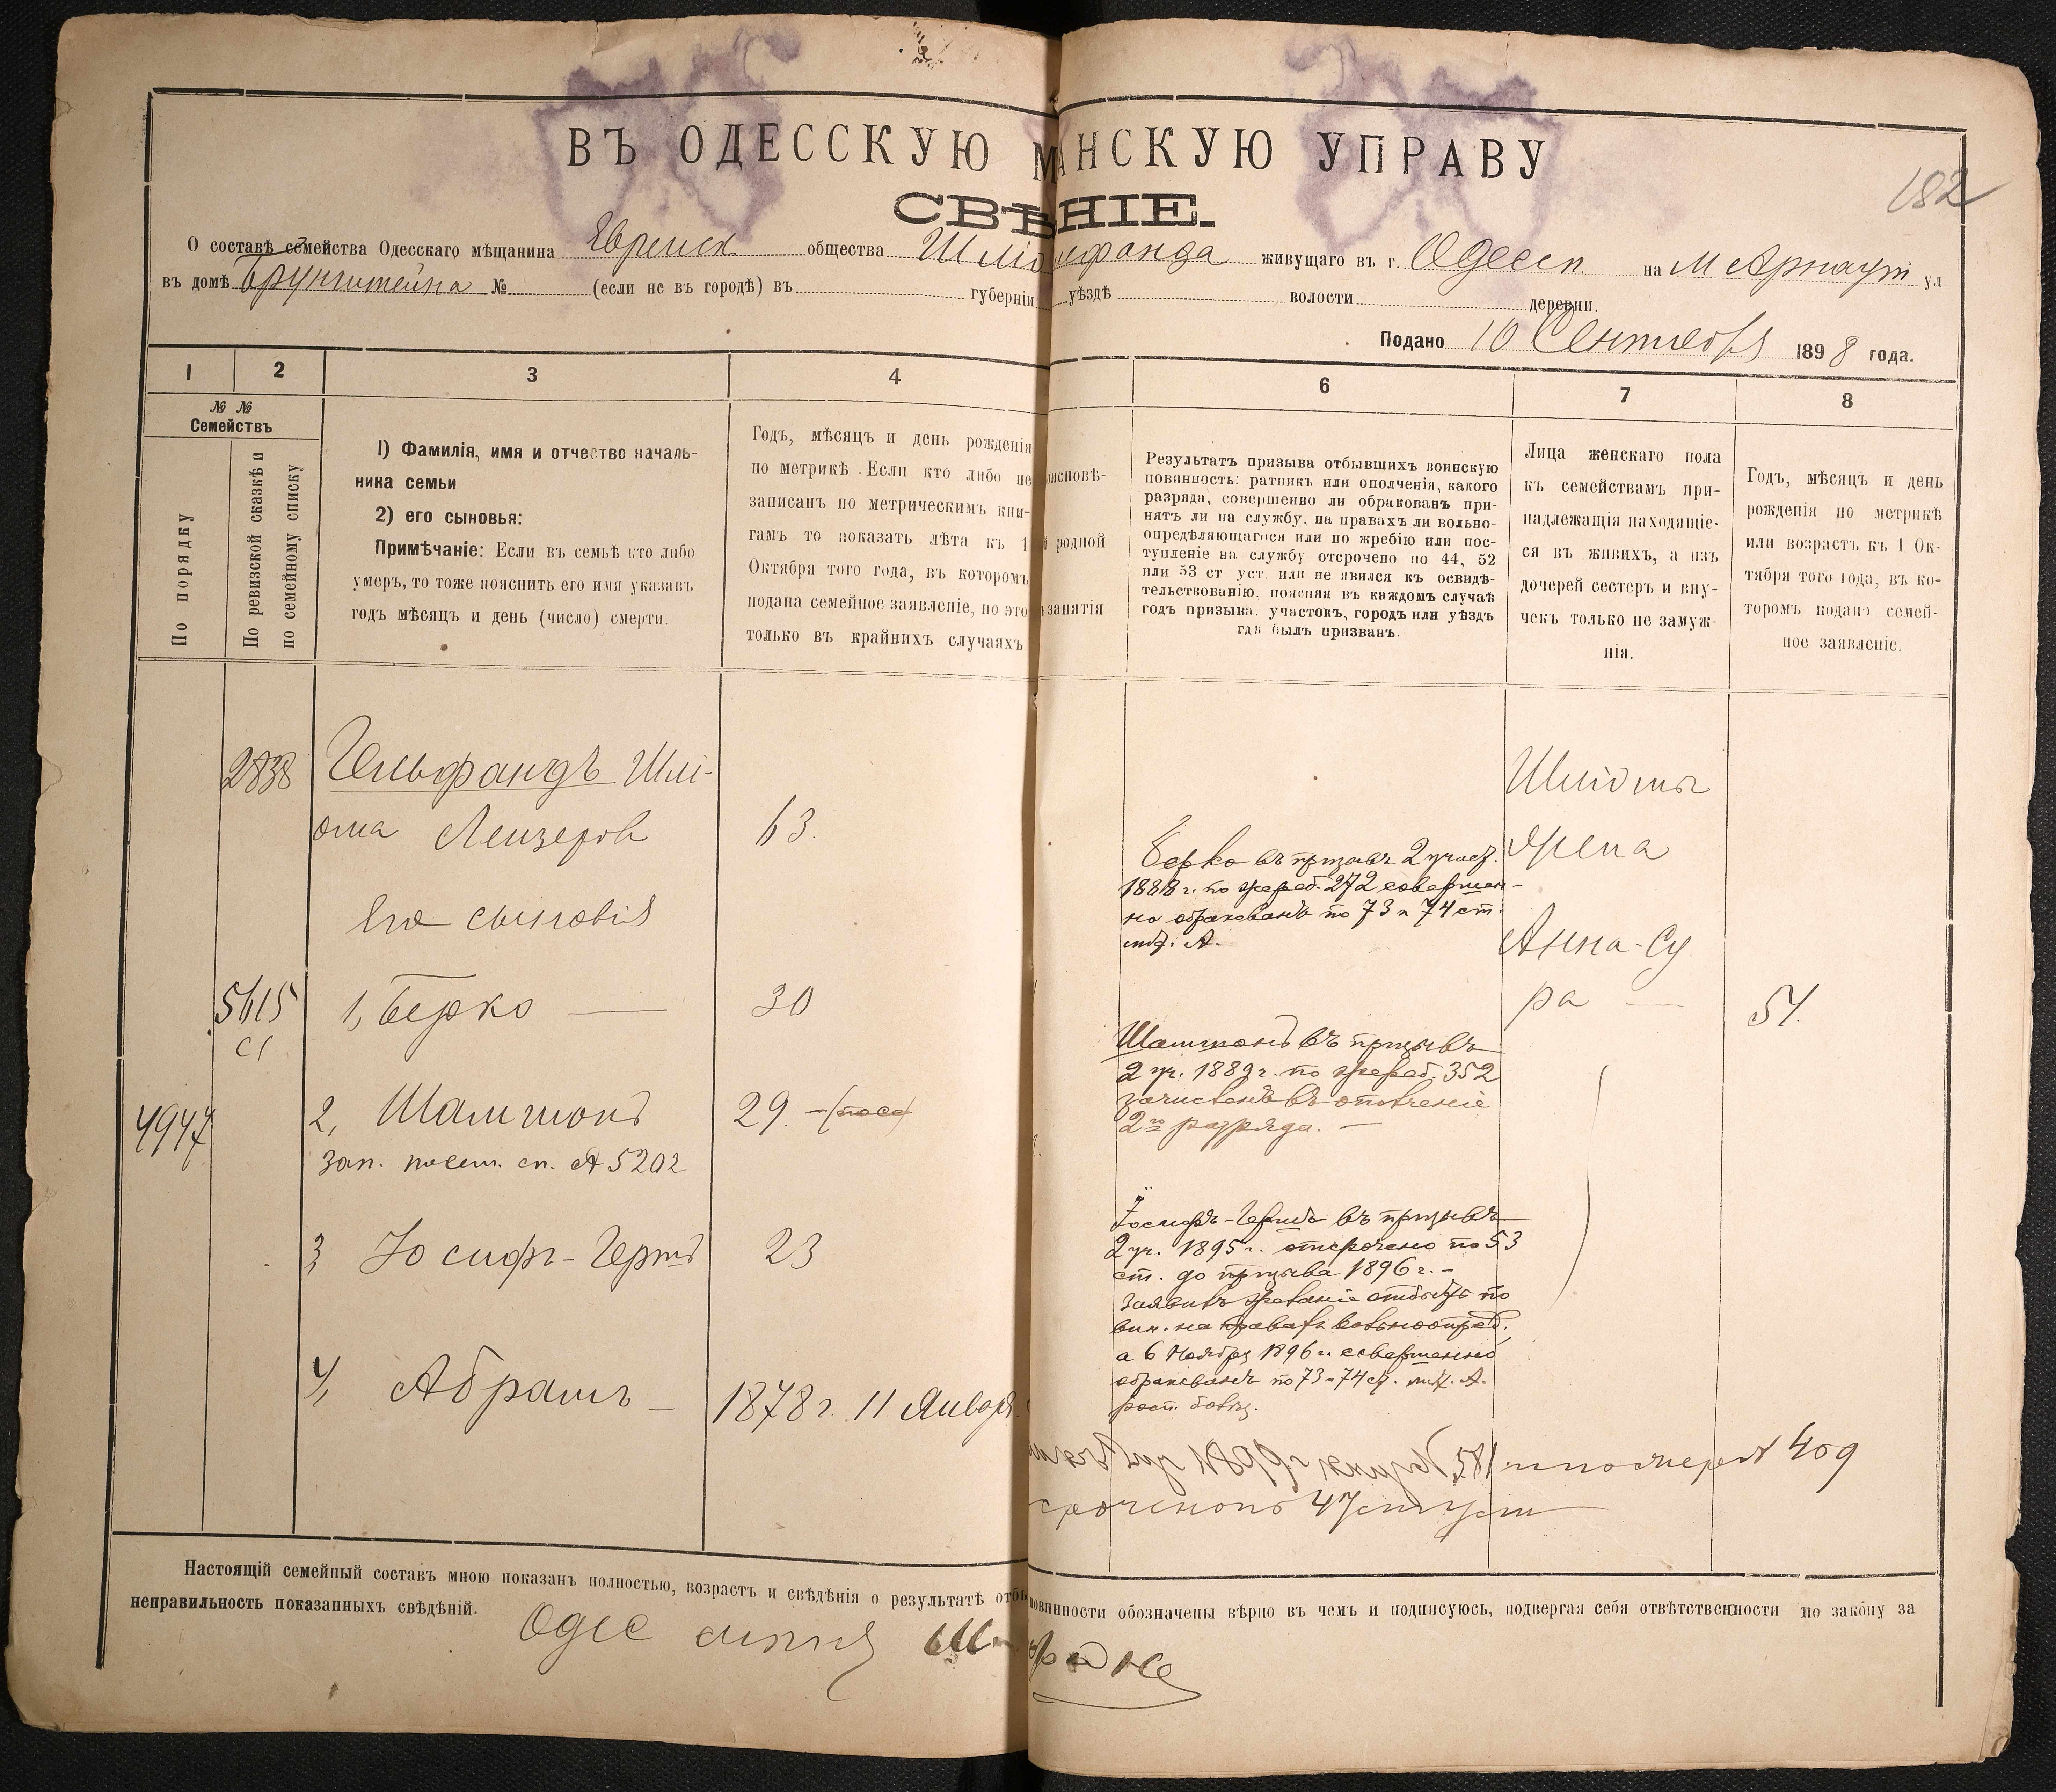 ВЪ ОДЕССКУЮ М АНСКУЮ УПРАВУ
182
СВѢ НІЕ.
О составѣ семейства Одесскаго мѣщанина Еврейск. общества Шліо ьфанда живущаго въ г. Одессѣ на М Арнаут ул
въ домѣ Брунштейна № (если не въ городѣ) въ губерніи уѣздѣ волости деревни.
Подано 10 Сентября 1898 года.
1 2 3 4 6 7 8
№ №
Семействъ
По порядку
По ревизской сказкѣ и
по семейному списку
1) Фамилія, имя и отчество началь-
ника семьи
2) его сыновья:
Примѣчаніе: Если въ семьѣ кто либо
умеръ, то тоже пояснить его имя указавъ
годъ мѣсяцъ и день (число) смерти.
Годъ, мѣсяцъ и день рожденія
по метрикѣ. Если кто либо не
записанъ по метрическимъ кни-
гамъ то показать лѣта къ 1
Октября того года, въ которомъ
подана семейное заявленіе, но это
только въ крайнихъ случаяхъ
оисповѣ-
й родной
занятія
Результатъ призыва отбывшихъ воинскую
повинность: ратникъ или ополченія, какого
разряда, совершенно ли обракованъ при-
нятъ ли на службу, на правахъ ли вольно-
опредѣляющагося или по жребію или пос-
тупленіе на службу отсрочено по 44, 52
или 53 ст уст. или не явился къ освидѣ-
тельствованію, поясняя въ каждомъ случаѣ
годъ призыва, участокъ, городъ или уѣздъ
гдѣ былъ призванъ.
Лица женскаго пола
къ семействамъ при-
надлежащія находящіе-
ся въ живихъ, а изъ
дочерей сестеръ и вну-
чекъ только не замуж-
нія.
Годъ, мѣсяцъ и день
рожденія по метрикѣ
или возрастъ къ 1 Ок-
тября того года, въ ко-
торомъ подано семей-
ное заявленіе.
2838 Гельфандъ Шлі-
ома Лейзеров 63.
Его сыновія
5615 1, Берко — 30
4947 2, Шамшонъ 29.
зап. посем. сп. № 5202
3 Іосифъ-Гершъ 23
4, Абрамъ — 1878 г. 11 Января
Берко въ призывъ 2 участ.
1888 г. по жереб. 272 совершен-
но обракованъ по 73 и 74 ст.
лит. А.
Шамшонъ въ призывъ
2 уч. 1889 г. по жереб. 352
зачисленъ въ ополченіе
2го разряда. —
Іосифъ-Гершъ въ призывъ
2 уч. 1895 г. отсрочено по 53
ст. до призыва 1896 г. —
Заявивъ желаніе отбыть по
вин. на правахъ вольноопред.,
а 6 Ноября 1896 г. совершенно
обракованъ по 73 и 74 ст. лит. А.
жереб № 409
сроченопо 47 ст уст
Шліомы
жена
Анна-Су
ра — 54.
Настоящій семейный составъ мною показанъ полностью, возрастъ и свѣдѣнія о результатѣ отбы повинности обозначены вѣрно въ чемъ и подписуюсь, подвергая себя отвѣтственности по закону за
неправильность показанныхъ свѣдѣній.
Одес